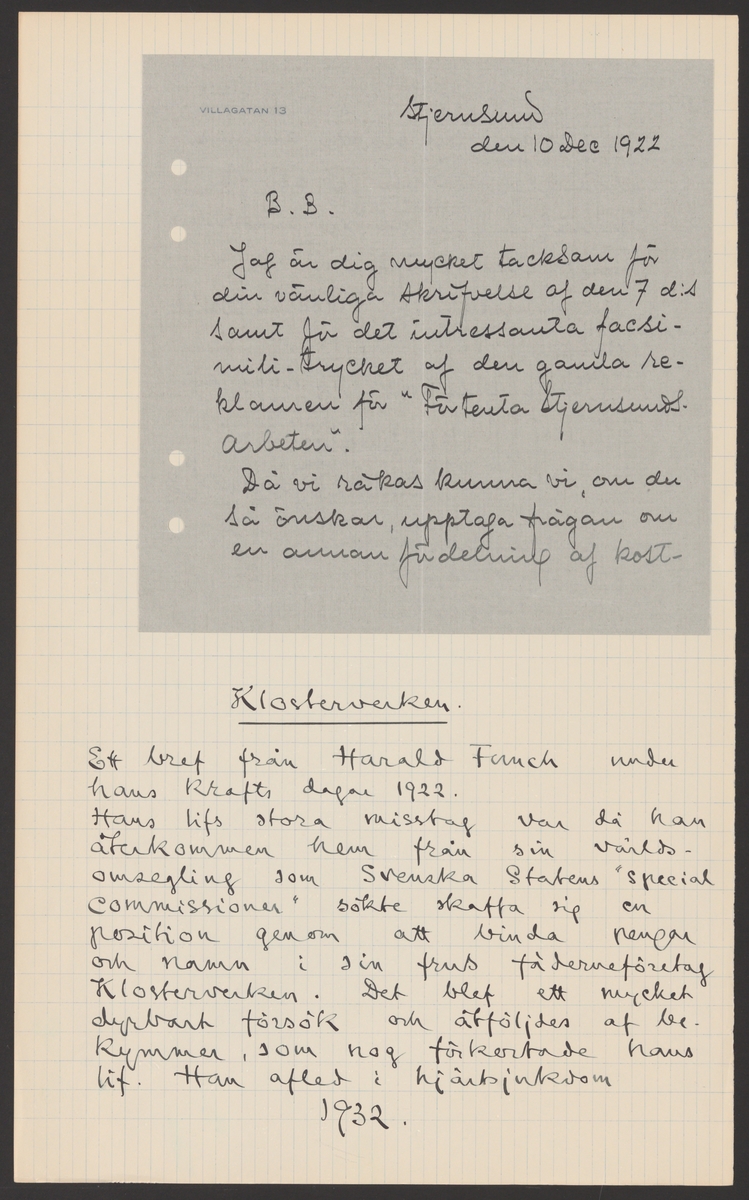 VILLAGATAN 13
Stjernsund
den 10 Dec 1922
B. B.
Jag är dig mycket tacksam för
din vänliga skrifvelse af den 7 d:s
samt för det intressanta facsi-
mili-trycket af den gamla re-
klamen för "Förtenta Stjernsunds-
arbeten".
Då vi råkas kunna vi, om du
så önskar, upptaga frågan om
en annan fördelning af kost-
Klosterverken.
Ett bref från Harald Fmuch under
hans krafts dagar 1922.
Hans lifs stora misstag var då han
återkommen hem från sin världs-
omsegling som Svenska Statens "special
commissioner" sökte skaffa sig en
position genom att binda pengar
och namn i sin frus fäderneföretag
Klosterverken. Det blef ett mycket
dyrbart försök och åtföljdes af be-
kymmer, som nog förkortade hans
lif. Han afled i hjärtsjukdom
1932.